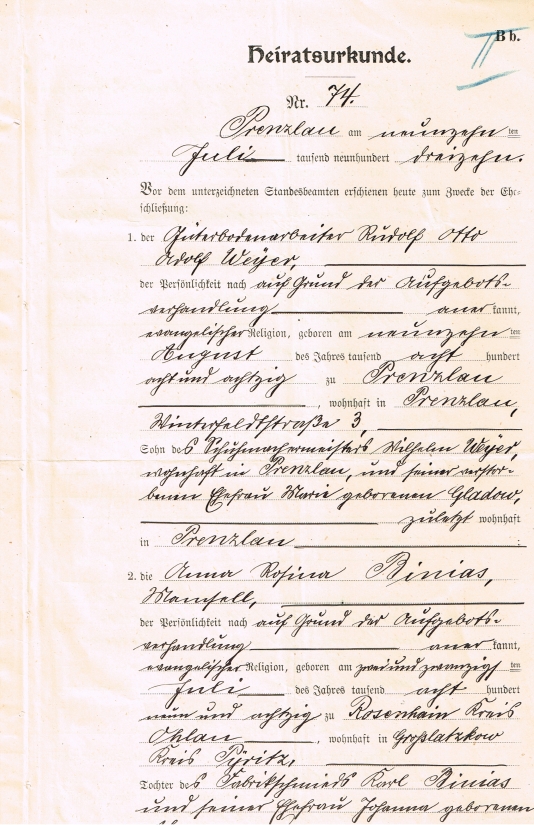 B b.
Heiratsurkunde.
Nr. 74.
Prenzlau am neunzehn ten
Juli tausend neunhundert dreizehn.
Vor dem unterzeichneten Standesbeamten erschienen heute zum Zwecke der Ehe-
schließung:
1. der Güterbodenarbeiter Rudolf Otto
Adolf Weyer,
der Persönlichkeit nach auf Grund der Aufgebots-
verhandlung anerkannt,
evangelischer Religion, geboren am neunzehn ten
August des Jahres tausend acht hundert
acht und achtzig zu Prenzlau
, wohnhaft in Prenzlau,
Winterfeldtstraße 3,
Sohn des Schuhmachermeisters Wilhelm Weyer,
wohnhaft in Prenzlau, und seiner verstor-
benen Ehefrau Marie geborenen Gladow,
zuletzt wohnhaft
in Prenzlau .
2. die Anna Rosina Binias,
Mamsell,
der Persönlichkeit nach auf Grund der Aufgebots-
verhandlung anerkannt,
evangelischer Religion, geboren am zwei und zwanzigs ten
Juli des Jahres tausend acht hundert
neun und achtzig zu Rosenhain Kreis
Ohlau , wohnhaft in Großlatzkow
Kreis Pyritz,
Tochter des Fabrikschmieds Karl Binias
und seiner Ehefrau Johanna geborenen